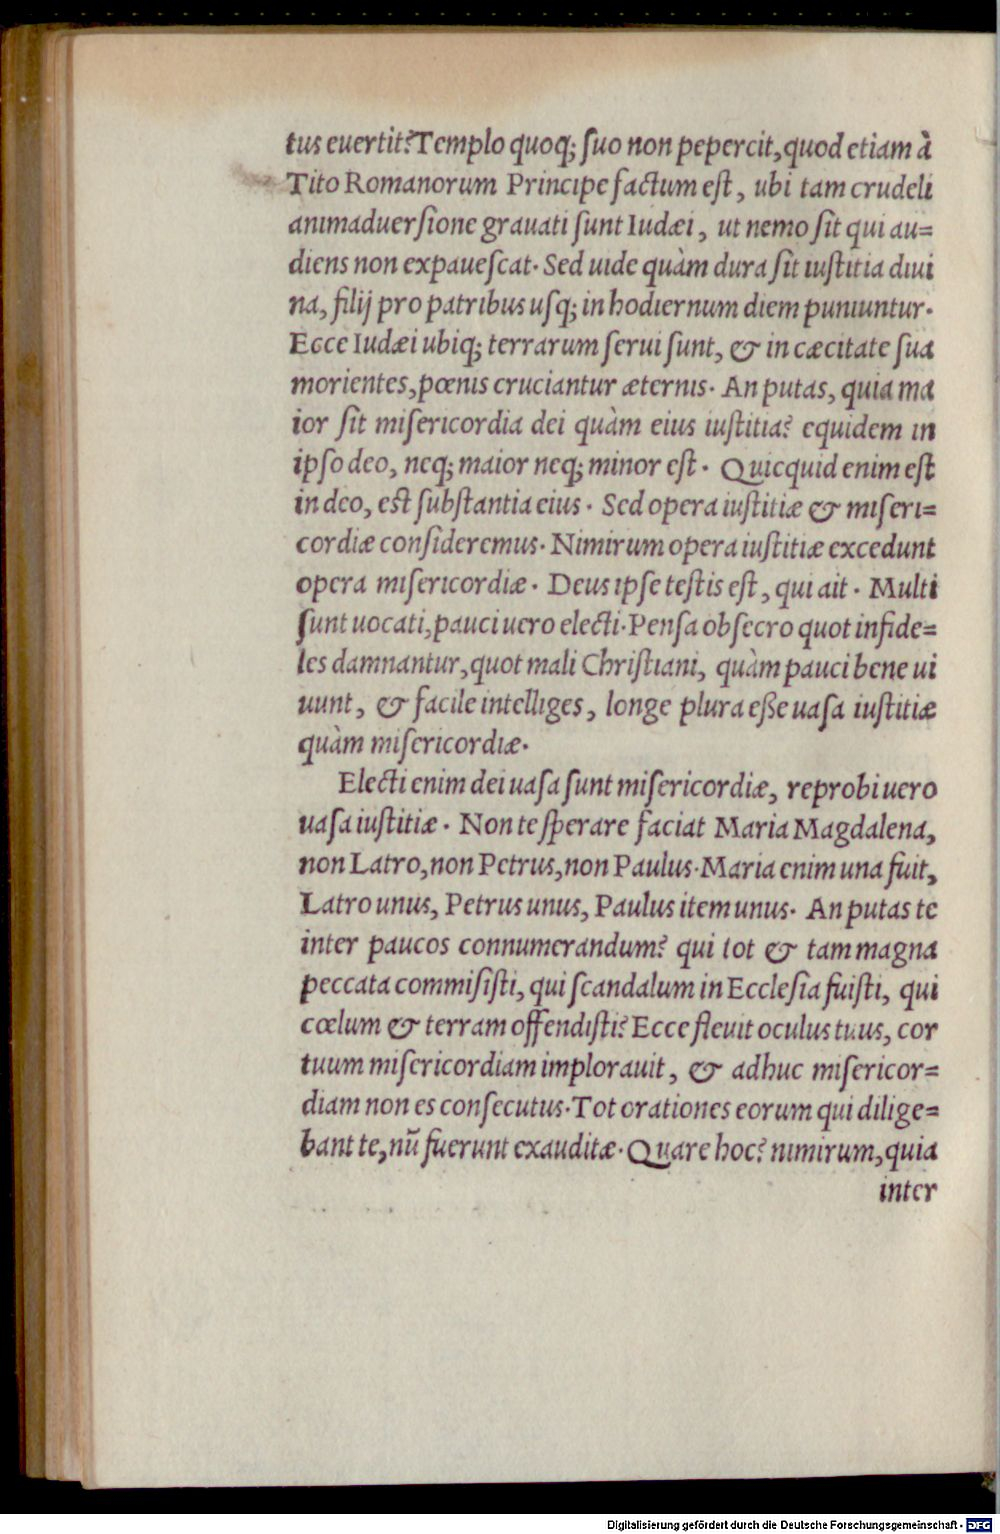 tus euertit? Templo quoq; ſuo non pepercit, quod etiam à
Tito Romanorum Principe factum eſt, ubi tam crudeli
animaduerſione grauati ſunt Iudæi, ut nemo ſit qui au=
diens non expaueſcat. Sed uide quàm dura ſit iuſtitia diui
na, filij pro patribus uſq; in hodiernum diem puniuntur.
Ecce Iudæi ubiq; terrarum ſerui ſunt, & in cæcitate ſua
morientes, pœnis cruciantur æternis. An putas, quia ma
ior ſit miſericordia dei quàm eius iuſtitia? equidem in
ipſo deo, neq; maior neq; minor eſt. Quicquid enim eſt
in deo, eſt ſubſtantia eius. Sed opera iuſtitiæ & miſeri=
cordiæ conſideremus. Nimirum opera iuſtitiæ excedunt
opera miſericordiæ. Deus ipſe teſtis eſt, qui ait. Multi
ſunt uocati, pauci uero electi. Penſa obſecro quot infide=
les damnantur, quot mali Chriſtiani, quàm pauci bene ui
uunt, & facile intelliges, longe plura eſſe uaſa iuſtitiæ
quàm miſericordiæ.
Electi enim dei uaſa ſunt miſericordiæ, reprobi uero
uaſa iuſtitiæ. Non te ſperare faciat Maria Magdalena,
non Latro, non Petrus, non Paulus. Maria enim una fuit,
Latro unus, Petrus unus, Paulus item unus. An putas te
inter paucos connumerandum? qui tot & tam magna
peccata commiſiſti, qui ſcandalum in Eccleſia fuiſti, qui
cœlum & terram offendiſti? Ecce fleuit oculus tuus, cor
tuum miſericordiam implorauit, & adhuc miſericor=
diam non es conſecutus. Tot orationes eorum qui dilige=
bant te, nū fuerunt exauditæ. Quare hoc? nimirum, quia
inter
Digitalisierung gefördert durch die Deutsche Forschungsgemeinschaft - DFG